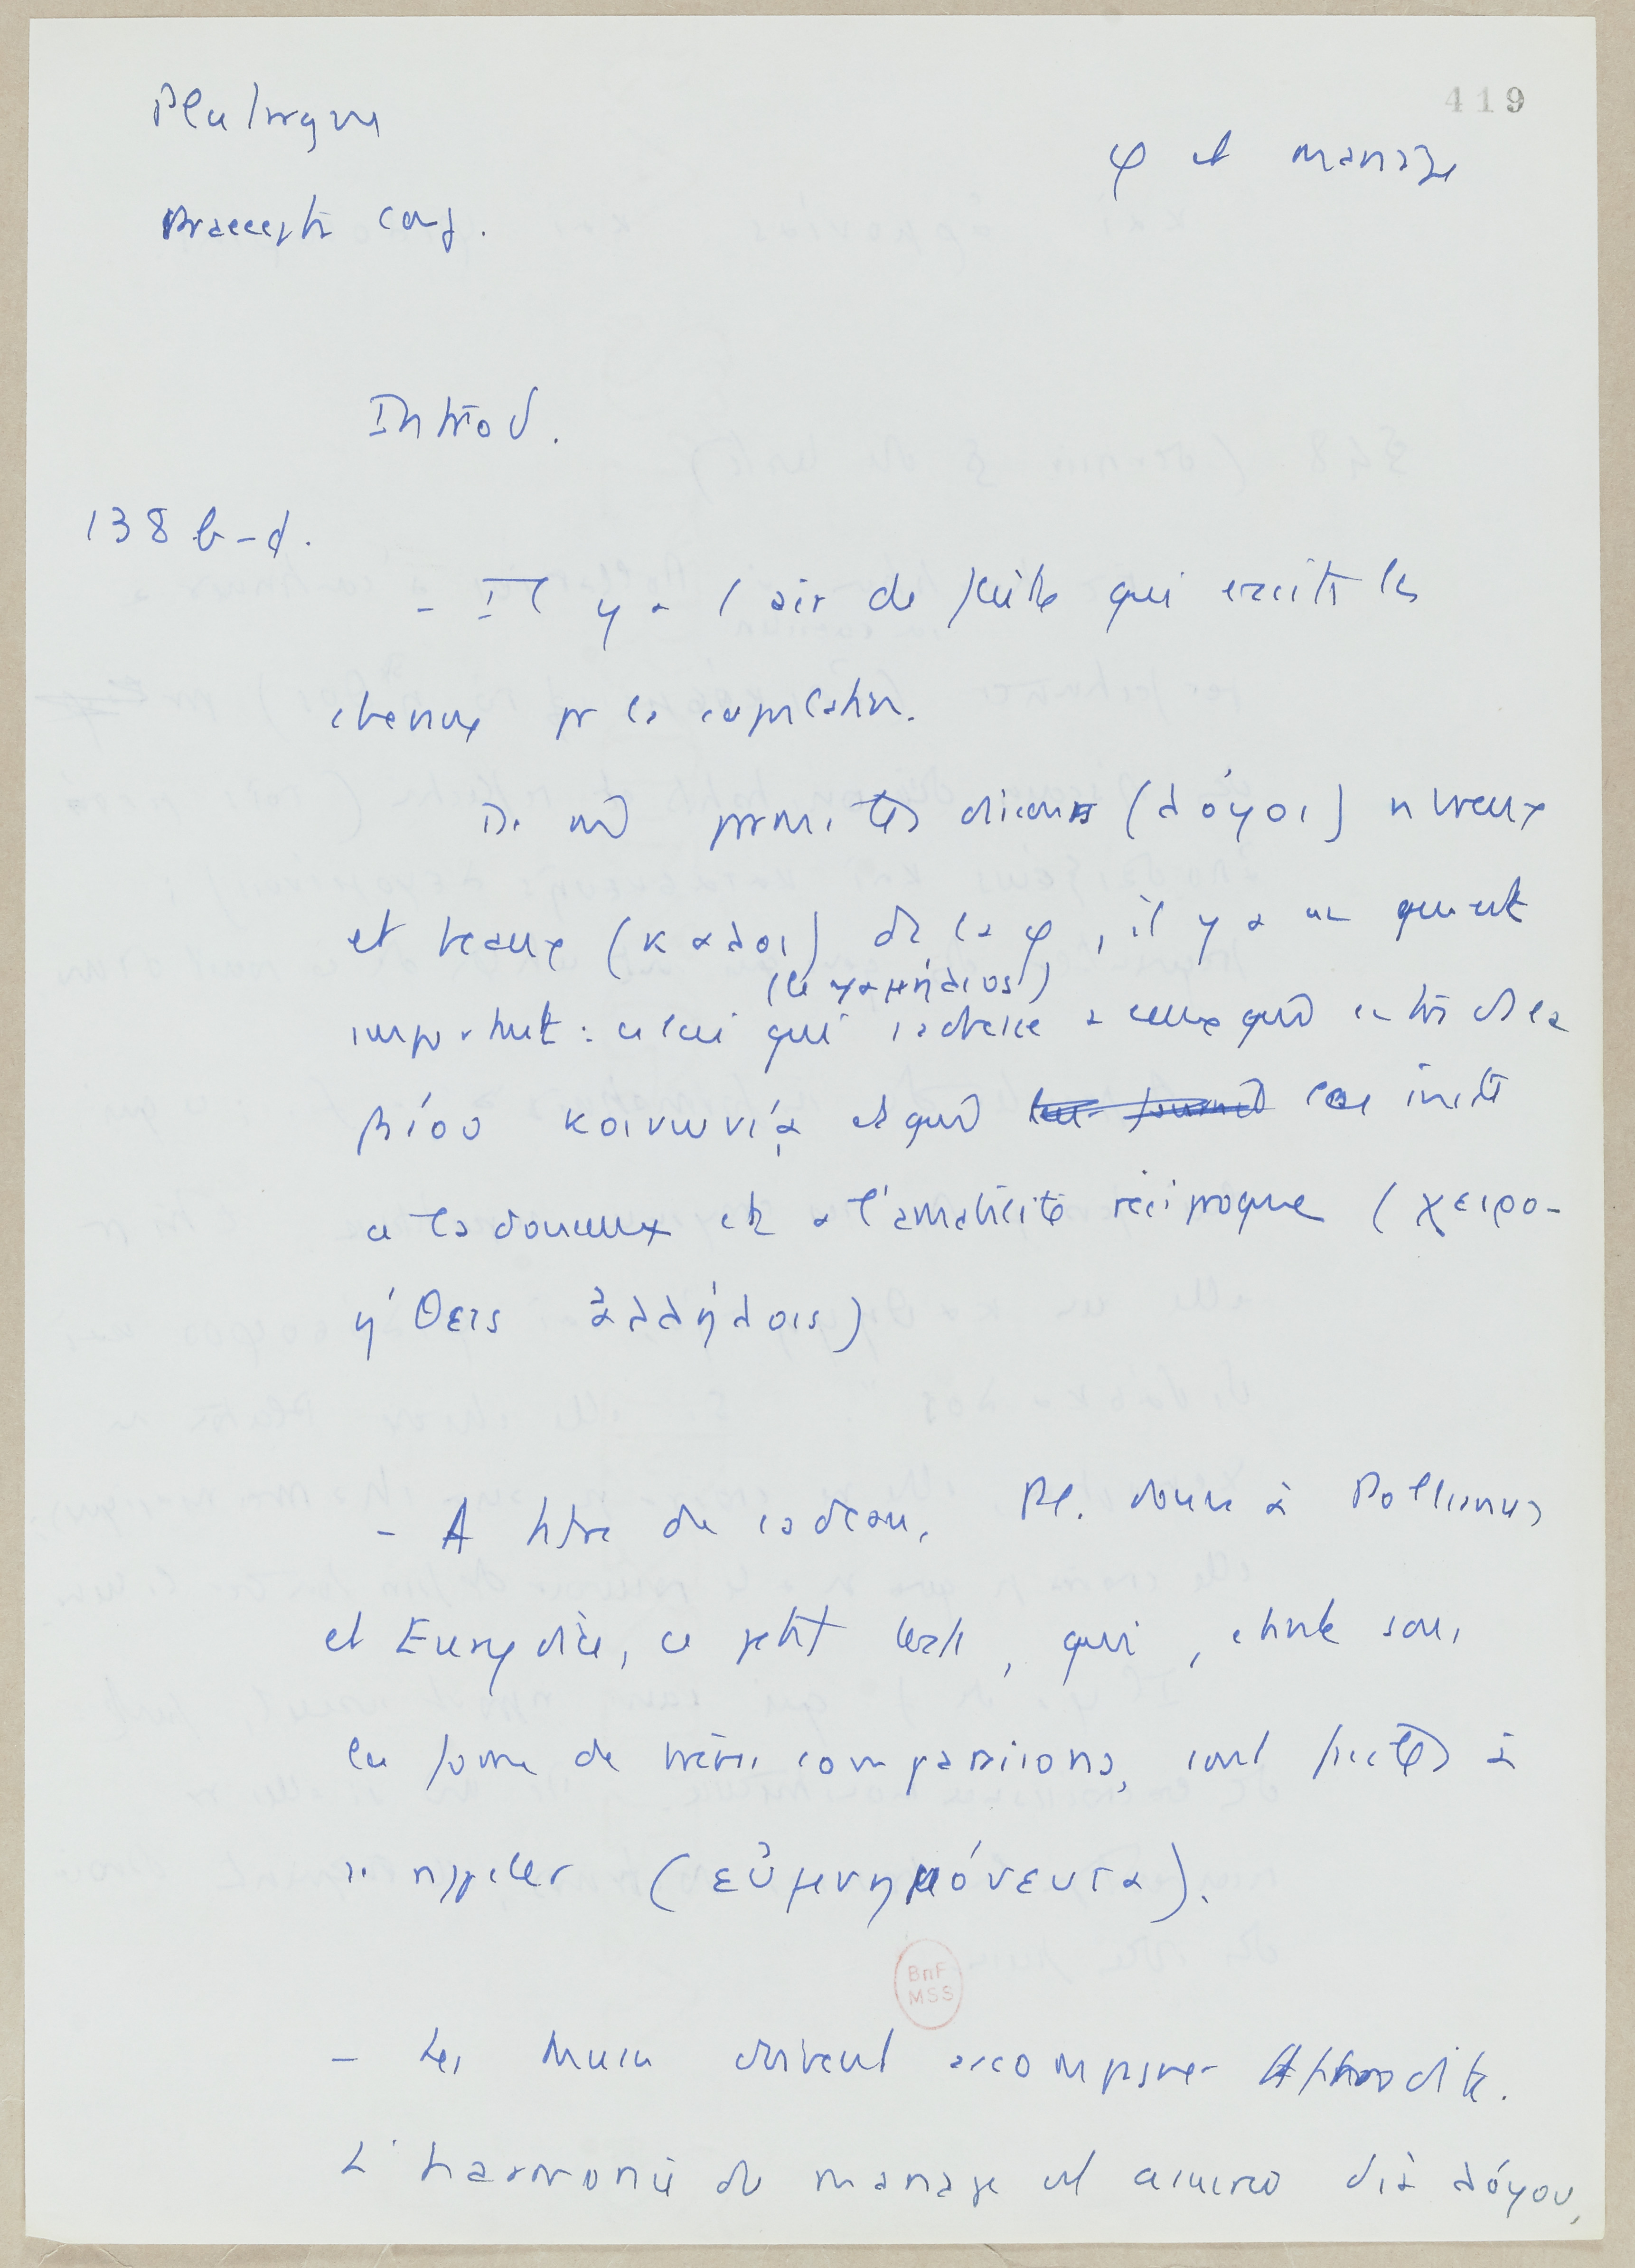 419
Plutarque
φ et mariage
Praecepta conj.
Introd.
138 b-d.
- Il y a l'air de flûte qui excite les
chevaux pr la copulation.
De m̂ parmi ts discours (λόγοι) nbreux
et beaux (καλοι) de la φ, il y a un qui est
(le γαμήλιος)
important : celui qui s'adresse à ceux qui entrt ds la
βίου κοινωνίᾳ et qui les incite
à la douceur et à l'amabilité réciproque (χειρο-
ήθεις ἀλλήλοις)
- A titre de cadeau, Pl. donne à Pollianus
et Eurydice, ce petit texte, qui, étant sous
la forme de brèves comparaisons, sont faciles à
se rappeler (εὐμνημόνευτα).
BnF
MSS
- Les Muses doivent accompagner Aphrodite.
L'harmonie du mariage est assurée διὰ λόγου,